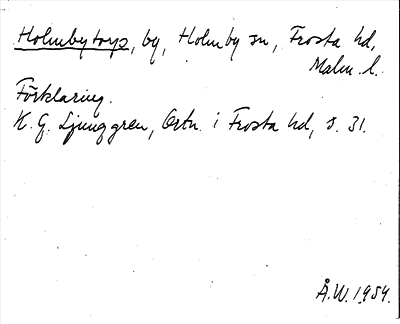 Holmbytorp, by, Holmby sn, Frosta hd,
Malm. l.
Förklaring.
K. G. Ljunggren, Ortn. i Frosta hd, s. 31.
Å.W. 1954.